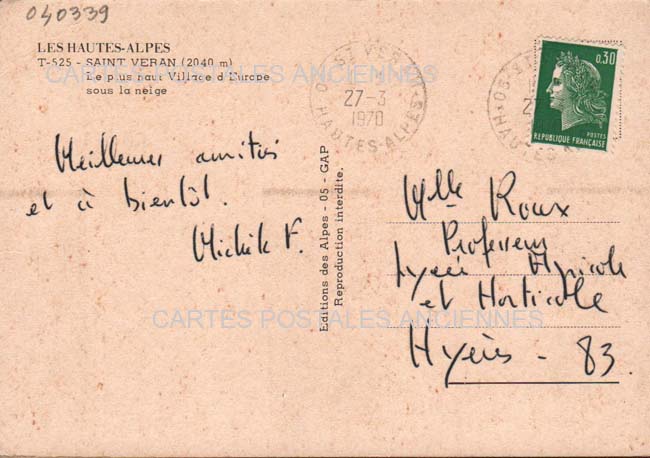 040339
LES HAUTES-ALPES
T-525 - SAINT VERAN (2040 m)
Le plus haut Village d'Europe
sous la neige
CARTES POSTALES ANCIENNES
Meilleures amitiés
et à bientôt.
Michèle F.
Editions des Alpes - 05 - GAP
Reproduction interdite.
05 ST VERAN
27-3
1970
HAUTES-ALPES
0,30
POSTES
REPUBLIQUE FRANÇAISE
Mlle Roux
Professeur
Lycée Agricole
et Horticole
Hyères - 83
CARTES POSTALES ANCIENNES